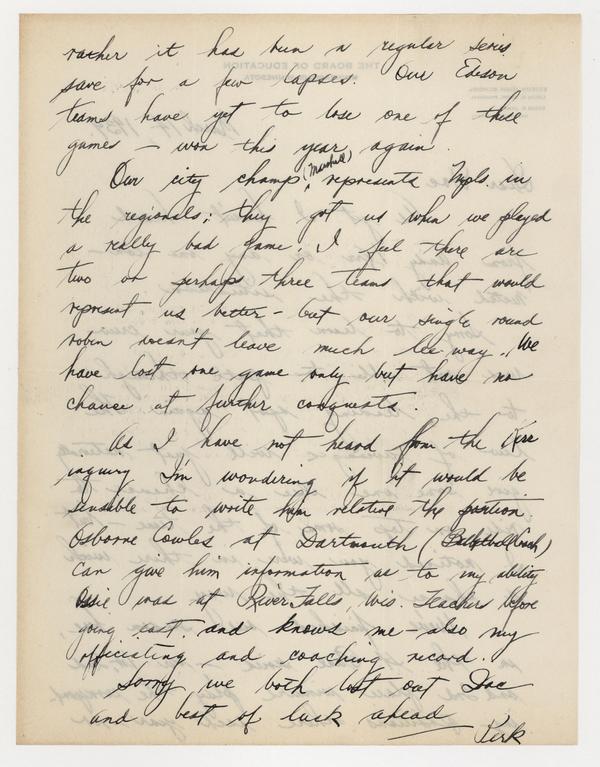 rather it has been a regular series
save for a few lapses. Our Edison
teams have yet to lose one of these
games — won this year, again.
Our city champ (Marshall), represents Mpls. in
the regionals; they got us when we played
a really bad game. I feel there are
two or perhaps three teams that would
represent us better - but our single round
robin doesn't leave much lee-way. We
have lost one game only but have no
chance at further conquests.
As I have not heard from the
inquiry I'm wondering if it would be
sensible to write him relative the position.
Osborne Cowles at Dartmouth (Basketball Coach)
can give him information as to my ability
Ossie was at River Falls, Wis. Teachers before
going east and knows me - also my
officiating and coaching record.
Sorry we both lost out Doc
and best of luck ahead
Kirk
THE BOARD OF EDUCATION